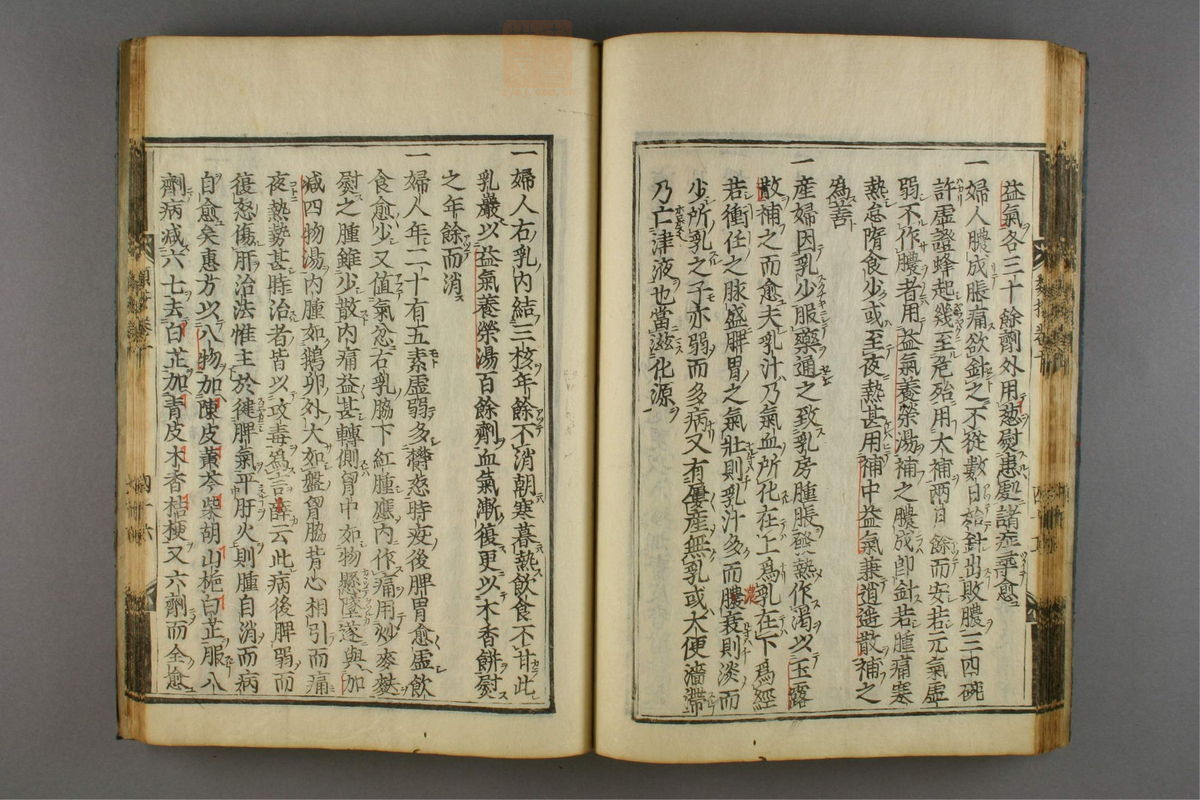 益氣各三十餘劑外用葱熨患處諸症尋愈
一婦人膿成脹痛欲針之不從數日始針出敗膿三四碗
許虛證蜂起幾至危殆用大補兩月餘而安若元氣虛
弱不作膿者用益氣養榮湯補之膿成卽針若腫痛寒
熱怠惰食少或至夜熱甚用補中益氣兼逍遙散補之
爲善
一産婦因乳少服藥通之致乳房腫脹發熱作渴以玉露
散補之而愈夫乳汁乃氣血所化在上爲乳在下爲經
若衝任之脉盛脾胃之氣壯則乳汁多而膿衰則淡而
濃
少所乳之子亦弱而多病又有屢産無乳或大便濇滯
乃亡津液也當滋化源
一婦人右乳內結三核年餘不消朝寒暮熱飲食不甘此
乳巖以益氣養榮湯百餘劑血氣漸復更以木香餅熨
之年餘而消
一婦人年二十有五素虛弱多欝忿時疫後脾胃愈虛飲
食愈少又値氣忿右乳脇下紅腫應內作痛用炒麥麩
熨之腫雖少散內痛益甚轉側胷中如物懸墜遂與加
减四物湯內腫如鵝卵外大如盤胷脇背心相引而痛
夜熱勢甚時治者皆以攻毒爲言薛云此病後脾弱而
復怒傷肝治法惟主於健脾氣平肝火則腫自消而病
自愈矣惠方以八物加陳皮黃芩柴胡山梔白芷服八
劑病减六七去白芷加靑皮木香桔梗又六劑而全愈